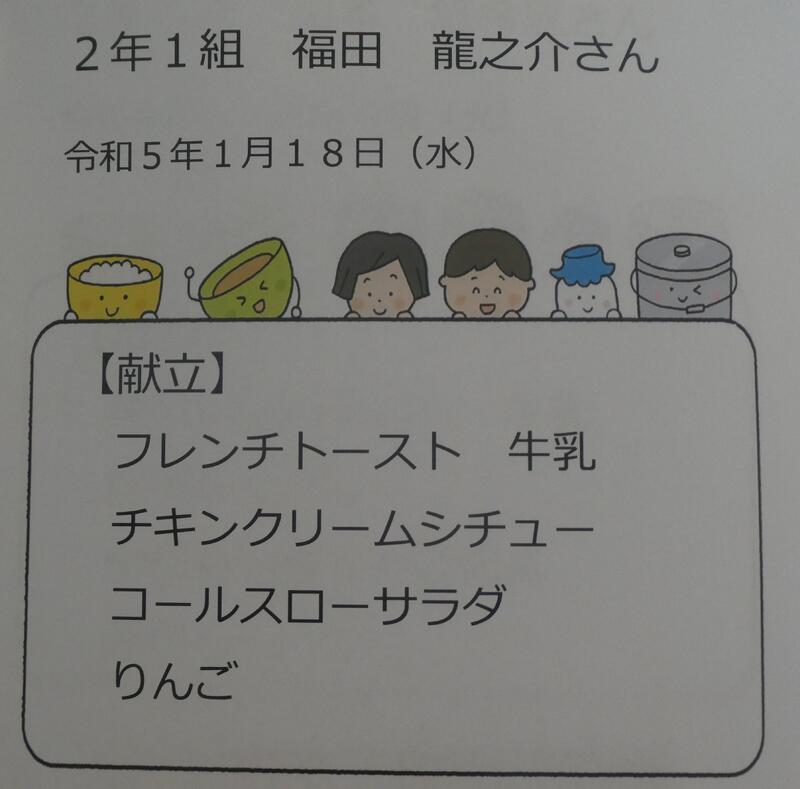 ２年１組　福田　龍之介さん
令和５年１月１８日（水）
【献立】
フレンチトースト　牛乳
チキンクリームシチュー
コールスローサラダ
りんご